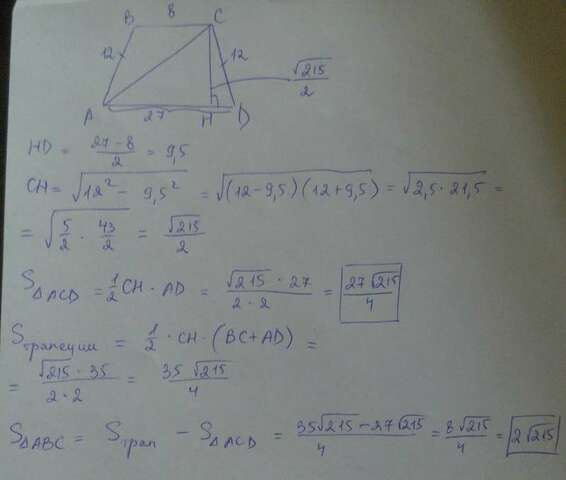 B 8 C
12 12 √215/2
A 27 H D
HD = (27 − 8)/2 = 9,5
CH = √(12² − 9,5²) = √((12−9,5)(12+9,5)) = √(2,5 · 21,5) =
= √(5/2 · 43/2) = √215/2
S△ACD = 1/2 CH · AD = (√215 · 27)/(2 · 2) = 27√215/4
Sтрапеции = 1/2 · CH · (BC + AD) =
= (√215 · 35)/(2 · 2) = 35√215/4
S△ABC = Sтрап − S△ACD = (35√215 − 27√215)/4 = 8√215/4 = 2√215